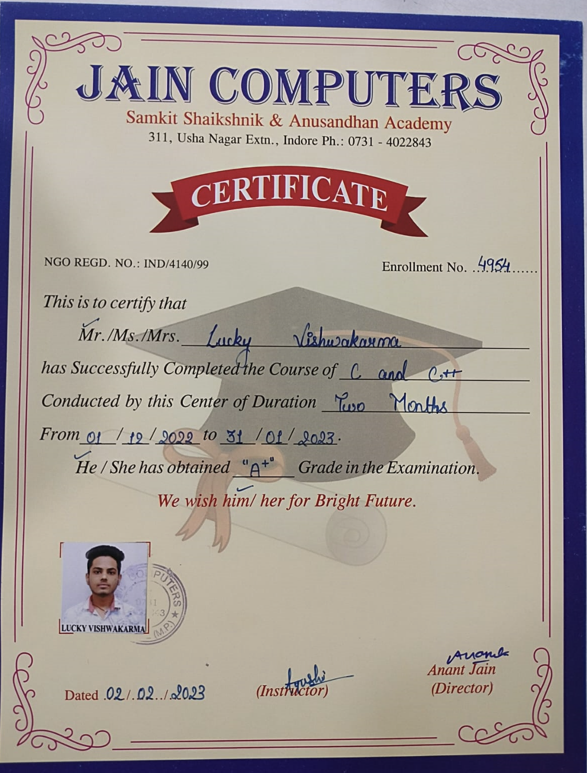 JAIN COMPUTERS
Samkit Shaikshnik & Anusandhan Academy
311, Usha Nagar Extn., Indore Ph.: 0731 - 4022843
CERTIFICATE
NGO REGD. NO.: IND/4140/99
Enrollment No. ..4954......
This is to certify that
Mr./Ms./Mrs. Lucky Vishwakarma
has Successfully Completed the Course of C and C++
Conducted by this Center of Duration Two Months
From 01 / 12 / 2022 to 31 / 01 / 2023.
He / She has obtained "A+" Grade in the Examination.
We wish him/ her for Bright Future.
COMPUTERS
(M.P.)
LUCKY VISHWAKARMA
Anant Jain
Dated .02/.02../2023 (Instructor) (Director)